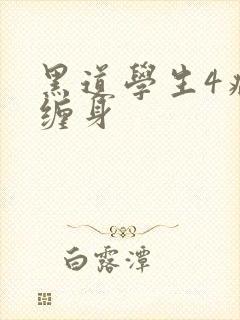 黑道學生4
缠身
白露潭